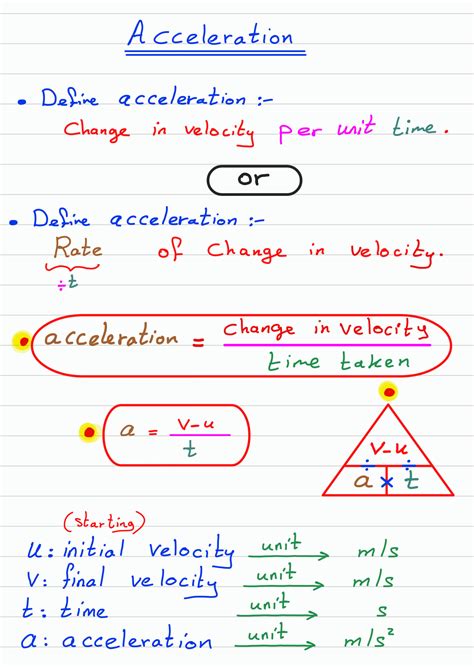 Acceleration
• Define acceleration :-
Change in velocity per unit time.
or
• Define acceleration :-
Rate of Change in velocity.
÷t
acceleration = change in velocity / time taken
a = v-u / t
v-u
÷ ÷
a × t
(starting)
u: initial velocity unit → m/s
v: final velocity unit → m/s
t: time unit → s
a: acceleration unit → m/s²